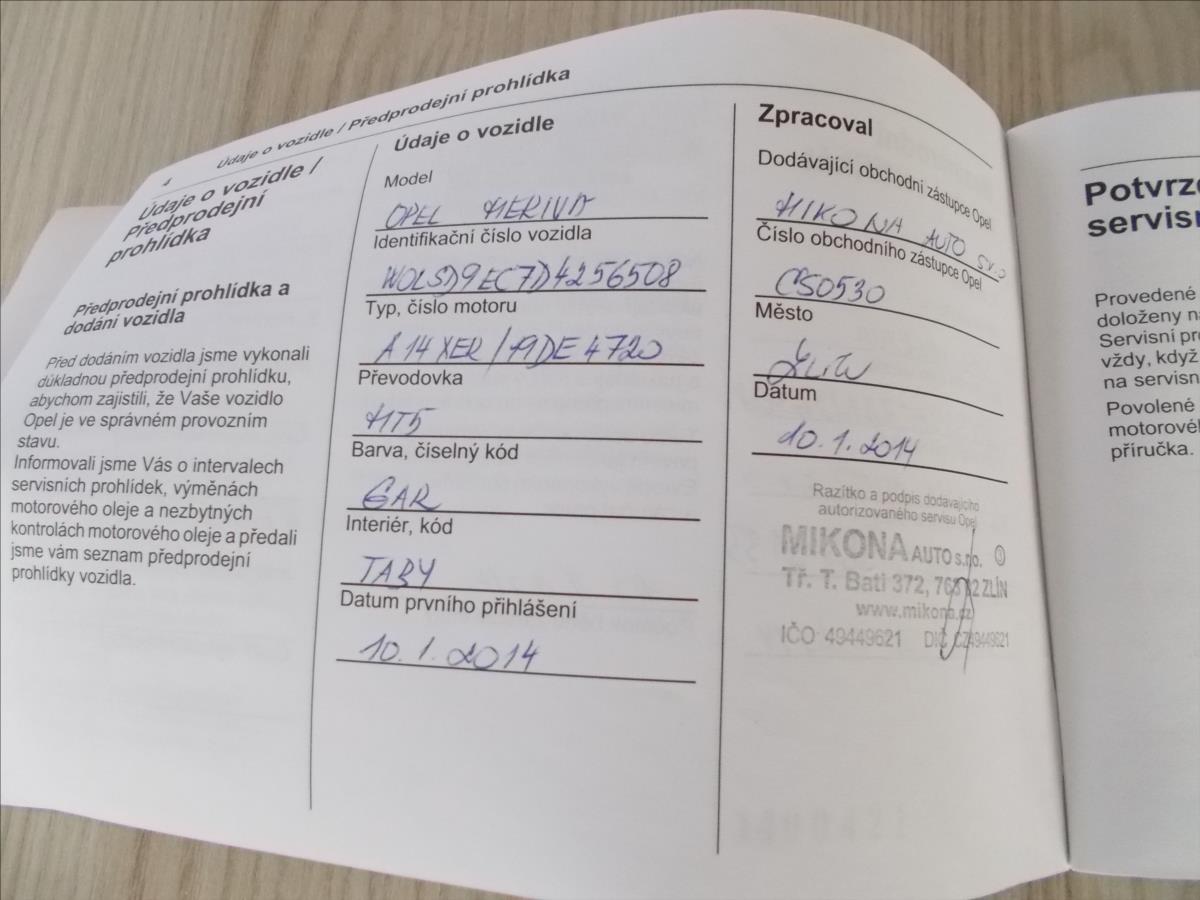 4
Údaje o vozidle / Předprodejní prohlídka
Údaje o vozidle /
Předprodejní
prohlídka
Předprodejní prohlídka a
dodání vozidla
Před dodáním vozidla jsme vykonali
důkladnou předprodejní prohlídku,
abychom zajistili, že Vaše vozidlo
Opel je ve správném provozním
stavu.
Informovali jsme Vás o intervalech
servisních prohlídek, výměnách
motorového oleje a nezbytných
kontrolách motorového oleje a předali
jsme vám seznam předprodejní
prohlídky vozidla.
Údaje o vozidle
Model
OPEL MERIVA
Identifikační číslo vozidla
W0LSD9EC7D4256508
Typ, číslo motoru
A14XER / 19DE4720
Převodovka
MT5
Barva, číselný kód
GAR
Interiér, kód
TABY
Datum prvního přihlášení
10.1.2014
Zpracoval
Dodávající obchodní zástupce Opel
MIKONA AUTO s.r.o
Číslo obchodního zástupce Opel
CS0530
Město
Zlín
Datum
10.1.2014
Razítko a podpis dodávajícího
autorizovaného servisu Opel
MIKONA AUTO s.r.o.
Tř. T. Bati 372, ZLÍN
www.mikona.cz
IČO 49449621 DIČ CZ49449621
Potvrze
servisn
Provedené
doloženy na
Servisní pro
vždy, když
na servisn
Povolené
motorovéh
příručka.